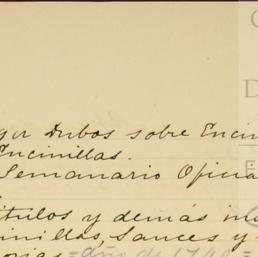 ger Dubos sobre Encin
Encinillas.
Semanario Oficia
ítulos y demás in
inillas, Sauces y
orias = año de 1740 =